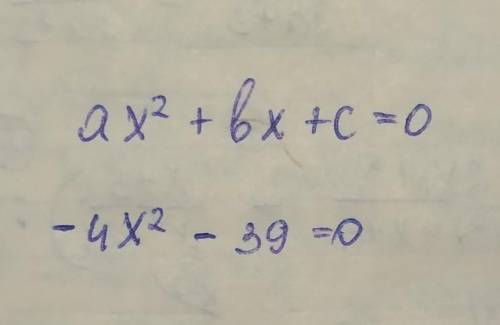 ax² + bx + c = 0
-4x² - 39 = 0